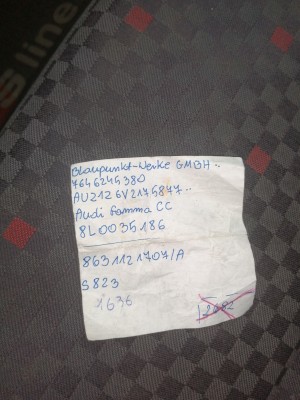 S line
Blaupunkt-Werke GMBH..
7646245380
AUZ1Z6V2175877..
Audi Gamma CC
8L0035186
8631121707/A
S823
1636